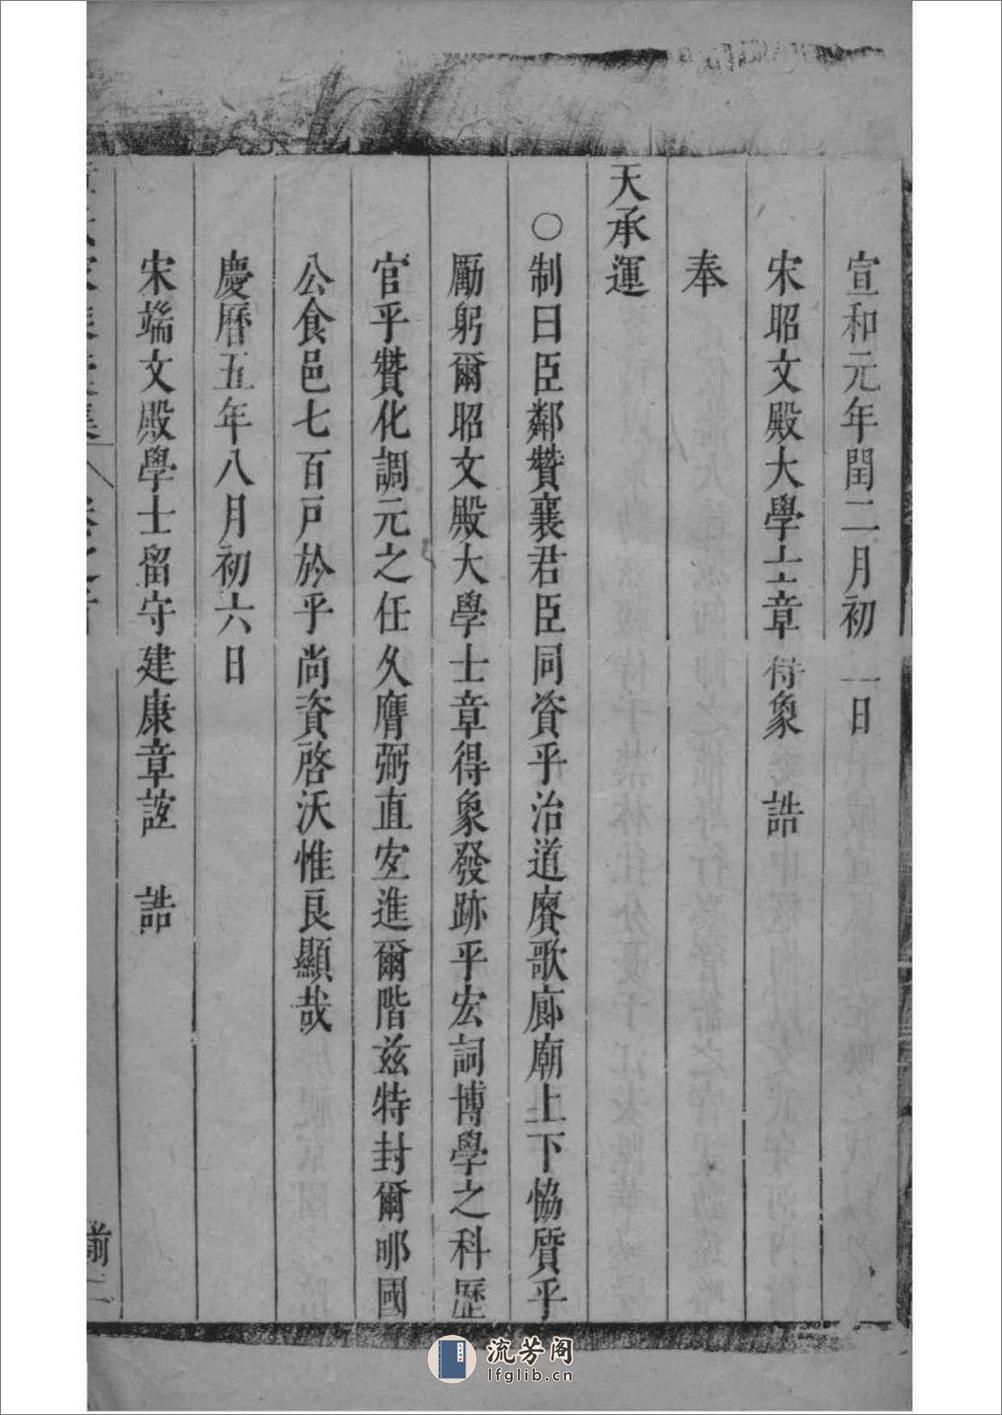 宣和元年閏二月初一日
宋昭文殿大學士章得象　誥
奉
天承運
○制曰臣鄰贊襄君臣同資乎治道賡歌廊廟上下恊質乎
勵躬爾昭文殿大學士章得象發跡乎宏詞博學之科歷
官乎贊化調元之任久膺弼直安進爾階兹特封爾郇國
公食邑七百戸於乎尚資啓沃惟良顯哉
慶曆五年八月初六日
宋端文殿學士留守建康章誼　誥
前二
流芳阁
lfglib.cn